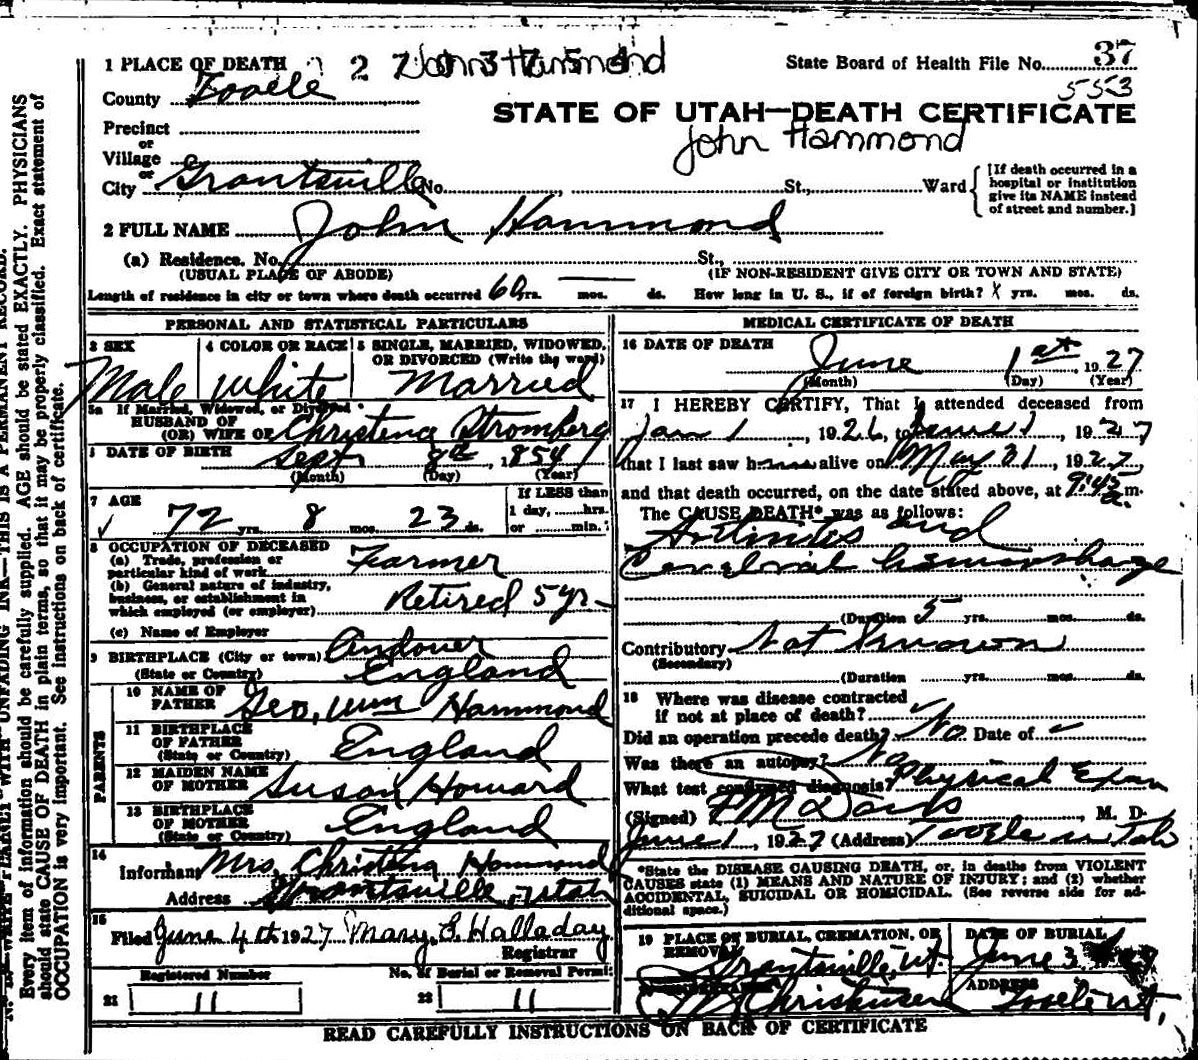 1 PLACE OF DEATH
2 7 0 3 7 5 4
John Hammond
State Board of Health File No. 37
553
County Tooele
STATE OF UTAH—DEATH CERTIFICATE
John Hammond
Precinct
or
Village
or
City Grantsville No. , St., Ward
[If death occurred in a hospital or institution give its NAME instead of street and number.]
2 FULL NAME John Hammond
(a) Residence. No. St.,
(USUAL PLACE OF ABODE) (IF NON-RESIDENT GIVE CITY OR TOWN AND STATE)
Length of residence in city or town where death occurred 60 yrs. — mos. ds. How long in U. S., if of foreign birth? X yrs. mos. ds.
PERSONAL AND STATISTICAL PARTICULARS
3 SEX 4 COLOR OR RACE 5 SINGLE, MARRIED, WIDOWED,
OR DIVORCED (Write the word)
Male White Married
5a If Married, Widowed, or Divorced
HUSBAND OF
(OR) WIFE OF Christena Stromberg
6 DATE OF BIRTH Sept 8th, 1854
(Month) (Day) (Year)
7 AGE
If LESS than
1 day, hrs.
or min.?
72 yrs. 8 mos. 23 ds.
8 OCCUPATION OF DECEASED
(a) Trade, profession or
particular kind of work Farmer
(b) General nature of industry,
business, or establishment in
which employed (or employer) Retired 5 yr
(c) Name of Employer
9 BIRTHPLACE (City or town) Andover
(State or Country) England
PARENTS
10 NAME OF
FATHER Geo, Wm Hammond
11 BIRTHPLACE
OF FATHER
(State or Country) England
12 MAIDEN NAME
OF MOTHER Susan Howard
13 BIRTHPLACE
OF MOTHER
(State or Country) England
14
Informant Mrs, Christina Hammond
Address Grantsville, Utah
15
Filed June 4th 1927 Mary B. Halladay
Registrar
Registered Number No. of Burial or Removal Permit
21 11 22 11
MEDICAL CERTIFICATE OF DEATH
16 DATE OF DEATH
June 1st, 1927
(Month) (Day) (Year)
17 I HEREBY CERTIFY, That I attended deceased from
Jan 1, 1926, to June 1, 1927
that I last saw him alive on May 31, 1927
and that death occurred, on the date stated above, at 9:45 a. m.
The CAUSE DEATH* was as follows:
and
Cerebral hemorrhage
(Duration 5 yrs. mos. ds.
Contributory Not Known
(Secondary)
(Duration yrs. mos. ds.
18 Where was disease contracted
if not at place of death?
Did an operation precede death? No Date of
Was there an autopsy? No
What test confirmed diagnosis? Physical Exam
(Signed) Davis, M. D.
June 1, 1927 (Address) Tooele Utah
*State the DISEASE CAUSING DEATH, or, in deaths from VIOLENT
CAUSES state (1) MEANS AND NATURE OF INJURY; and (2) whether
ACCIDENTAL, SUICIDAL OR HOMICIDAL. (See reverse side for ad-
ditional space.)
19 PLACE OF BURIAL, CREMATION, OR
REMOVAL
DATE OF BURIAL
Grantsville, Ut. June 3
ADDRESS
Tooele Ut,
READ CAREFULLY INSTRUCTIONS ON BACK OF CERTIFICATE
Every item of information should be carefully supplied. AGE should be stated EXACTLY. PHYSICIANS
should state CAUSE OF DEATH in plain terms, so that it may be properly classified. Exact statement of
OCCUPATION is very important. See instructions on back of certificate.